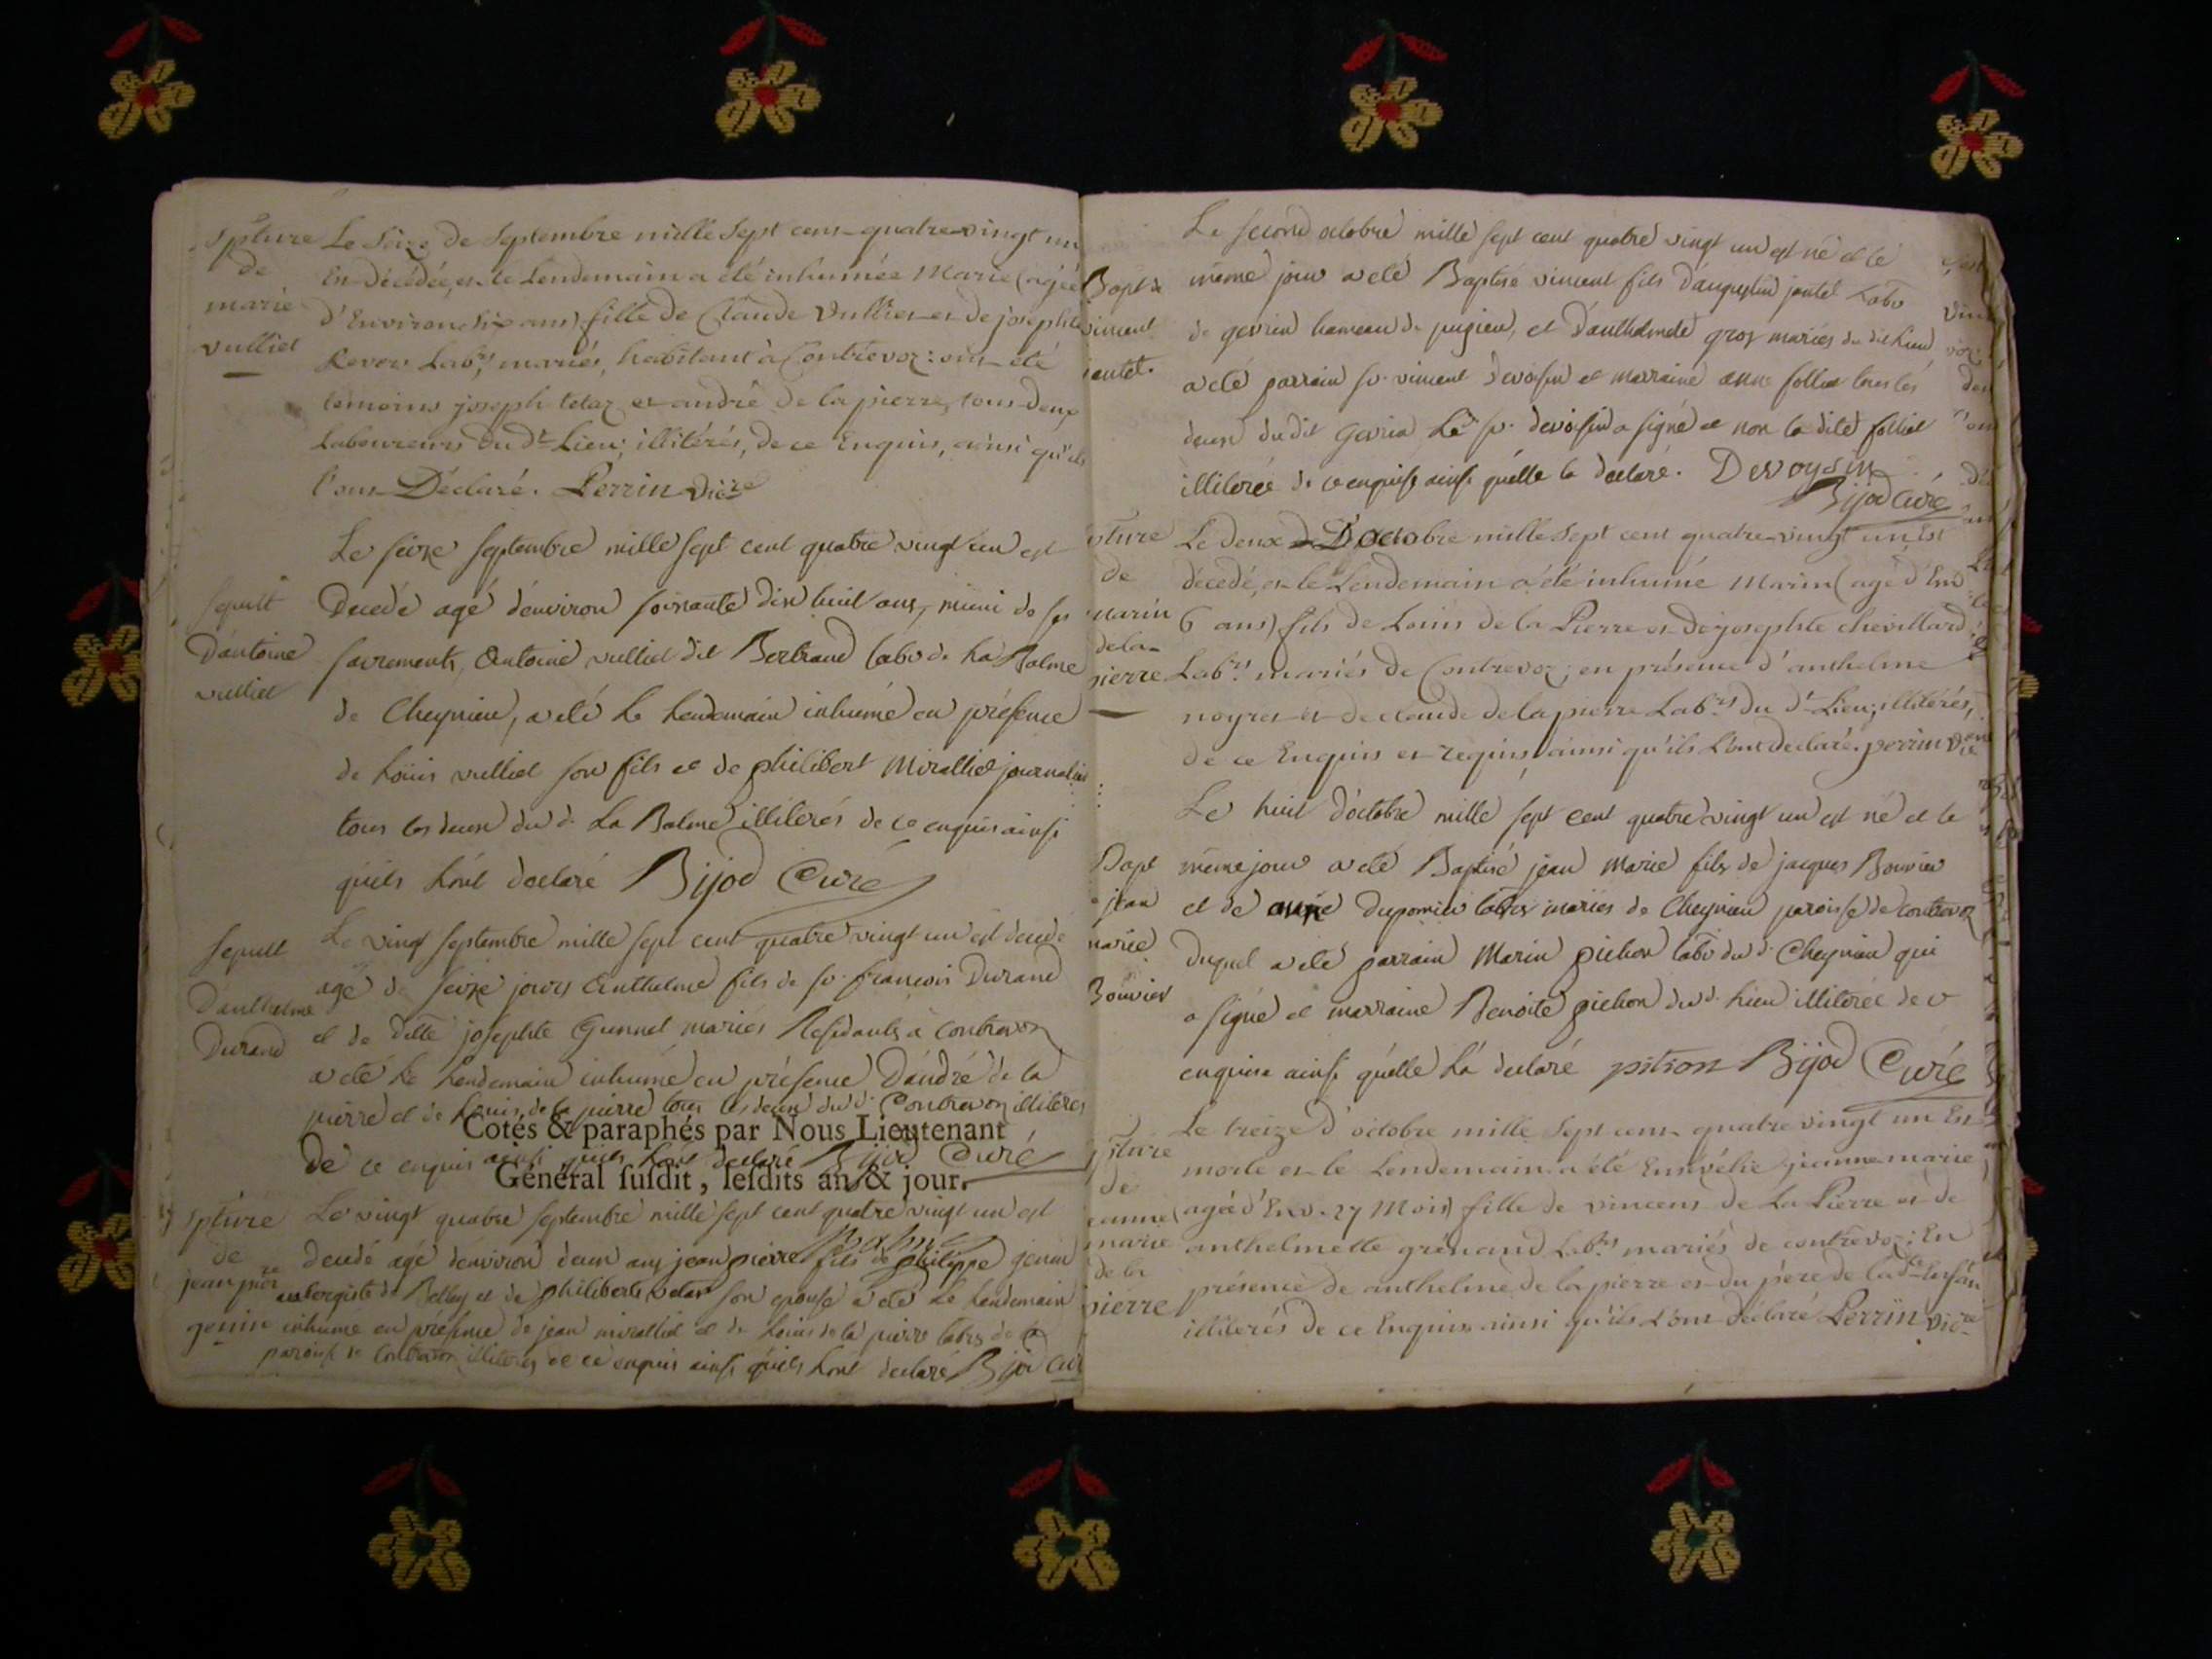 Spture
de
marie
vulliet
Le Seize de Septembre mille Sept cens quatre vingt un
Est Décédée, et le Lendemain a été inhumée Marie (agée
d'Environ Six ans) fille de Claude Vulliet et de josephte
Revers Lab.rs mariés, habitant à Contrevoz: ont été
temoins joseph tetaz et andré de la pierre, tous deux
Laboureurs dud.t Lieu; illitérés, de ce Enquis, ainsi qu'ils
l'ont Déclaré. Perrin vicre
Sepult
D'antoine
vulliet
Le seize septembre mille sept cent quatre vingt un est
Decedé agé d'environ soixante dix huit ans, muni de ses
sacrements, Antoine vulliet dit Bertrand labr de La Balme
de Cheynieu, a été le lendemain inhumé en présence
de Loüis vulliet son fils et de philibert Miralliet journalier
tous les deux du d. La Balme illiterés de ce enquis ainsi
qu'ils l'ont declaré Bijod Curé
Sepult
D'anthelme
Durand
Le vingt septembre mille sept cent quatre vingt un est decedé
agé de seize jours Anthelme fils de sr. françois Durand
et de Dlle josephte Gunnet mariés Residants à Contrevoz
a été le lendemain inhumé en présence D'andré de la
pierre et de Louis de la pierre tous les deux du d. Contrevoz illiterés
Cotés & paraphés par Nous Lieutenant
de ce enquis ainsi qu'ils l'ont declaré Bijod Curé
Général susdit, lesdits an & jour.
Spture
de
jean pierre
genin
Le vingt quatre septembre mille sept cent quatre vingt un est
decedé agé d'environ deux ans jean pierre fils de philippe genin
aubergiste de Belley et de philiberte vetar son epouse a été le lendemain
inhumé en présence de jean miralliet et de Louis de la pierre labrs de la
paroisse de Contrevoz illiterés de ce enquis ainsi qu'ils l'ont declaré Bijod Curé
Bapt
vincent
jantet.
Le second octobre mille sept cent quatre vingt un est né et le
même jour a été Baptisé vincent fils d'augustin jantet labr
de gevrin hameau de pugieu, et d'anthelmete gros mariés du dit lieu
a été parrain sr. vincent devoisin et marraine anne folliet tous les
deux dudit Gevrin Le sr. devoisin a signé et non la dite folliet
illiterée de ce enquise ainsi qu'elle l'a declaré. Devoysin
Bijod Curé
Spture
de
Marin
dela-
pierre
Le deux D'Octobre mille Sept cent quatre-vingt un Est
décédé, et le Lendemain a été inhumé Marin (agé d'Env
6 ans) fils de Louis de la Pierre et De josephte chevillard
Lab.rs mariés de Contrevoz; en présence d'anthelme
noyret et de claude de la pierre Lab.rs du d.t Lieu; illitérés,
de ce Enquis et requis, ainsi qu'ils L'ont declaré. perrin vicre
Bapt
jean
marie
Bouvier
Le huit d'octobre mille sept cent quatre vingt un est né et le
même jour a été Baptisé jean Marie fils de jacques Bouvier
et de anne Duponin labrs mariés de Cheynieu paroisse de contrevoz
Duquel a été parrain Marin pichon labr du d. Cheynieu qui
a signé et marraine Benoite pichon du d. lieu illiterée de ce
enquise ainsi qu'elle l'a declaré pition Bijod Curé
Spture
de
jeanne
marie
de la
pierre
Le treize d'octobre mille Sept cens quatre vingt un Est
morte et le Lendemain a été Ensévélie jeanne marie
(agée d'Env. 27 Mois) fille de vincent de La Pierre et de
anthelmette grénand Lab.rs mariés de contrevoz; En
présence de anthelme de la pierre et du père de lad.te Enfant
illitérés de ce Enquis ainsi qu'ils L'ont déclaré Perrin vicre